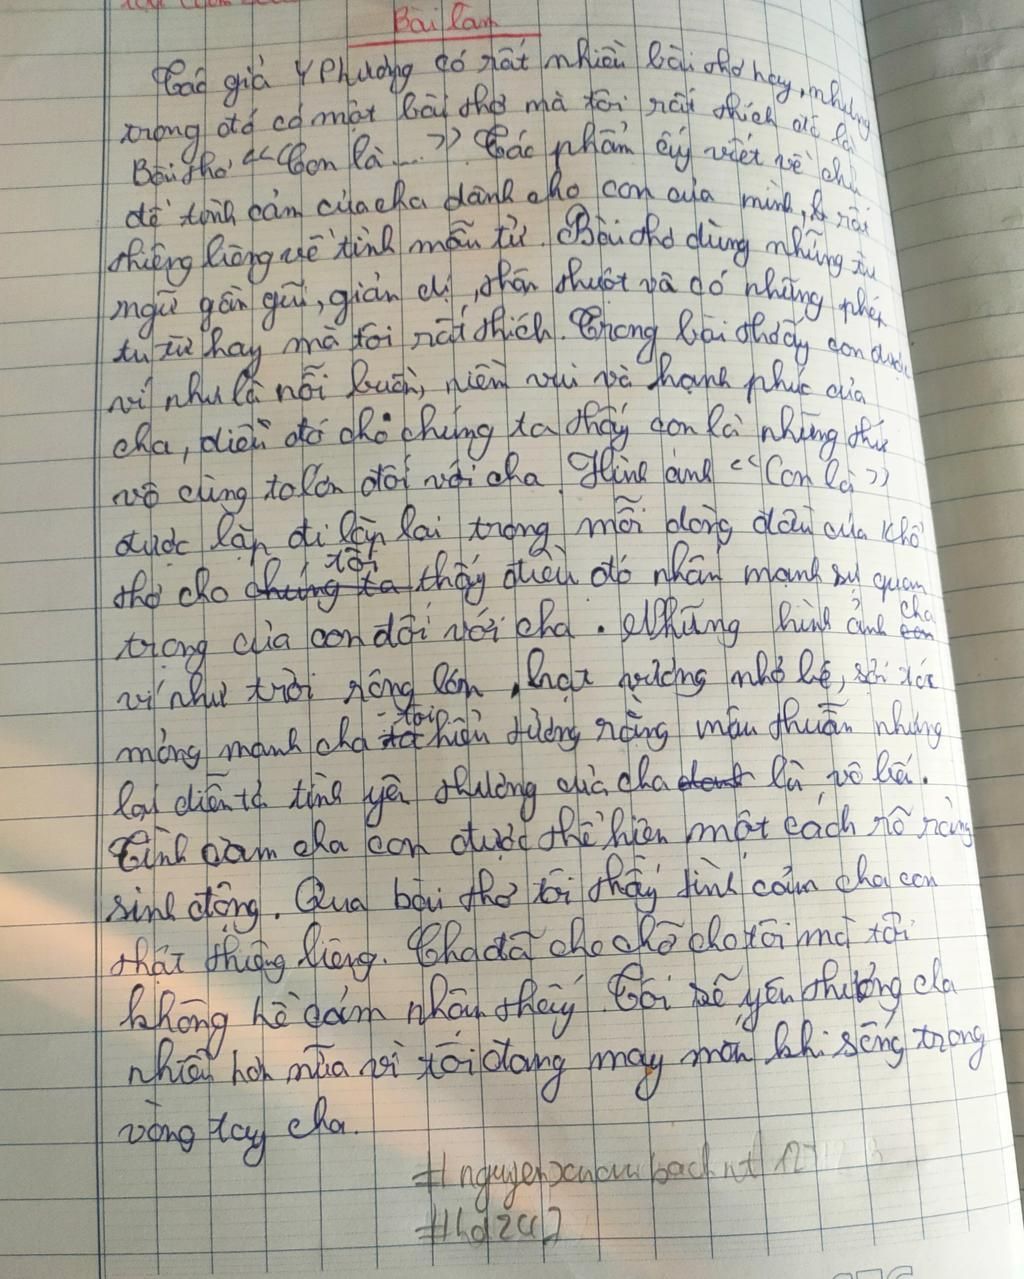 Bài làm
Tác giả Y Phương có rất nhiều bài thơ hay, nhưng
trong đó có một bài thơ mà tôi rất thích đó là
Bài thơ "Con là...". Tác phẩm ấy viết về chủ
đề tình cảm của cha dành cho con của mình, rất
thiêng liêng về tình mẫu tử. Bài thơ dùng những từ
ngữ gần gũi, giản dị, thân thuột và có những phép
tu từ hay mà tôi rất thích. Trong bài thơ ấy con được
ví như là nỗi buồn, niềm vui và hạnh phúc của
cha, điều đó cho chúng ta thấy con là những thứ
vô cùng to lớn đối với cha. Hình ảnh "Con là"
được lặp đi lặp lai trong mỗi dòng đầu của khổ
thơ cho tôi thấy điều đó nhấn mạnh sự quan
trọng của con đối với cha. Những hình ảnh cha
ví như trời rộng lớn, hạt vương nhỏ bé, sợi tóc
mỏng manh cho tôi hiện tường rằng mâu thuẫn nhưng
lại diễn tả tình yêu thương của cha là vô bến.
Tình cảm cha con được thể hiện một cách rõ ràng
sinh động. Qua bài thơ tôi thấy tình cảm cha con
thật thiêng liêng. Cha đã che chở cho tôi mà tôi
không hề cảm nhận thấy. Tôi sẽ yêu thương cha
nhiều hơn nữa vì tôi đang may mắn khi sống trong
vòng tay cha.